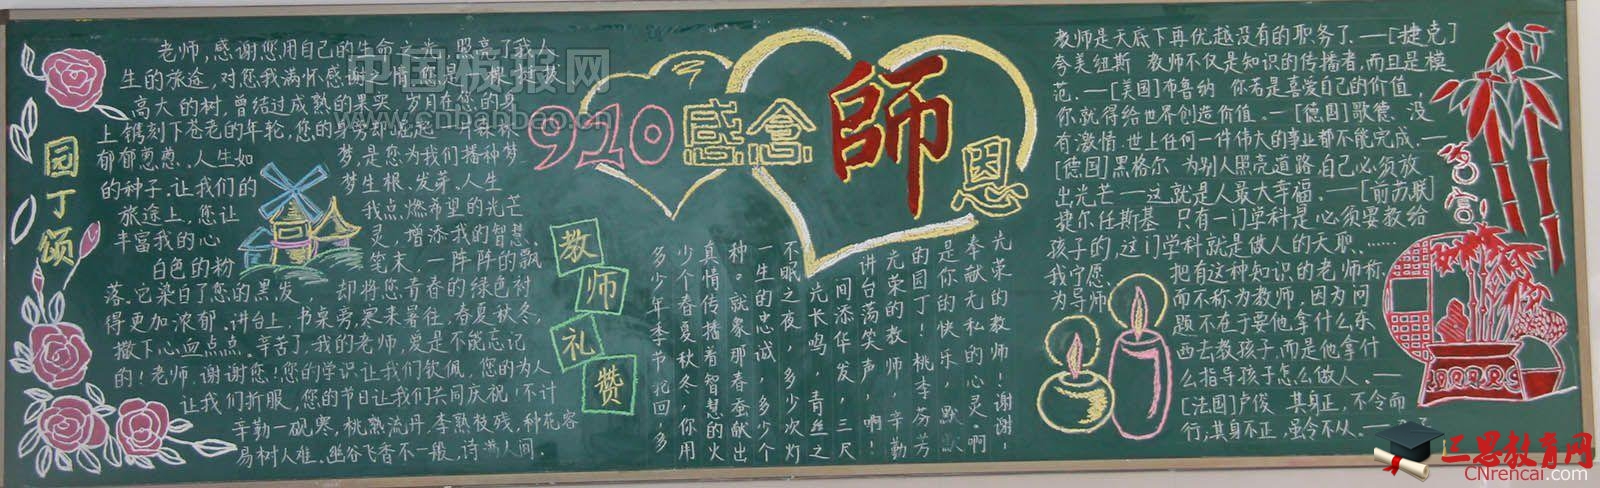 园丁颂
老师,感谢您用自己的生命之光,照亮了我人
生的旅途,对您我满怀感谢之情.您是一棵挺拔
高大的树,曾结过成熟的果实,岁月在您的身
上镌刻下苍老的年轮,您的身旁却崛起一片森林
郁郁葱葱、人生如
的种子.让我们的
旅途上,您让
丰富我的心
梦,是您为我们播种梦
梦生根、发芽、人生
我点燃希望的光芒
灵,增添我的智慧、
白色的粉
笔末,一阵阵的飘
落、它染白了您的黑发,却将您青春的绿色衬
得更加浓郁.讲台上,书桌旁,寒来暑往,春夏秋冬,
撒下心血点点。辛苦了,我的老师,爱是不能忘记
的!老师.谢谢您!您的学识让我们钦佩,您的为人
让我们折服,您的节日让我们共同庆祝!不计
辛勤一砚寒,桃熟流丹,李熟枝残,种花容
易树人难。幽谷飞香不一般,诗满人间.
910感念師恩
教师礼赞
光荣的教师!谢谢!
奉献无私的心灵。啊
是你的快乐,默默
的园丁!桃李芬芳
光荣的教师,辛勤
讲台荡笑声,啊!
间添华发,三尺
光长鸣,青丝之
不眠之夜,多少次灯
一生的忠诚,多少个
种。就象那春蚕献出
真情传播着智慧的火
少个春夏秋冬,你用
多少年季节轮回,多
教师是天底下再优越没有的职务了.—[捷克]
夸美纽斯 教师不仅是知识的传播者,而且是模
范.—[美国]布鲁纳 你若是喜爱自己的价值,
你就得给世界创造价值。—[德国]歌德、没
有激情.世上任何一件伟大的事业都不能完成.—
[德国]黑格尔 为别人照亮道路,自己必须放
出光芒—这就是人最大幸福.—[前苏联]
捷尔任斯基 只有一门学科是必须要教给
孩子的,这门学科就是做人的天职……
我宁愿
把有这种知识的老师称
为导师
而不称为教师,因为问
题不在于要他拿什么东
西去教孩子.而是他拿什
么指导孩子怎么做人.—
[法国]卢俊 其身正,不令而
行;其身不正,虽令不从。—
中国板报网
www.cnbanbao.cn
三恩教育网
CNrencai.com